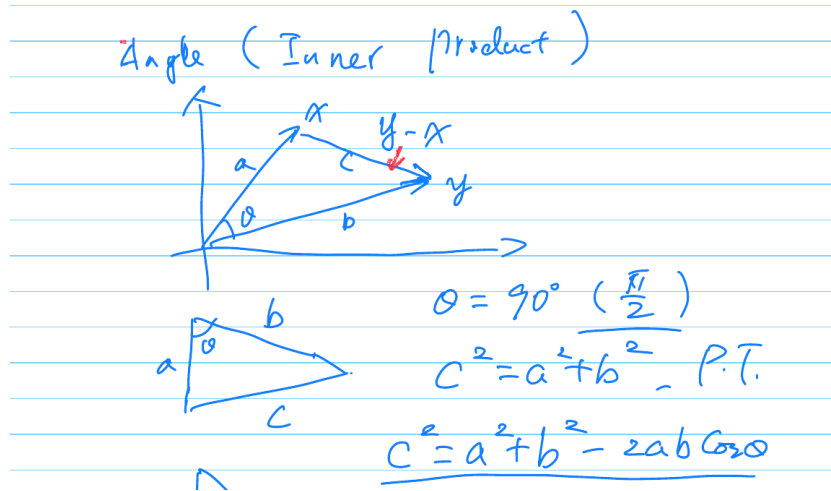 Angle (Inner Product)
x
y - x
a
c
y
θ
b
θ = 90° (π/2)
b
θ
a
c² = a² + b² - P.T.
c
c² = a² + b² - 2ab Cosθ